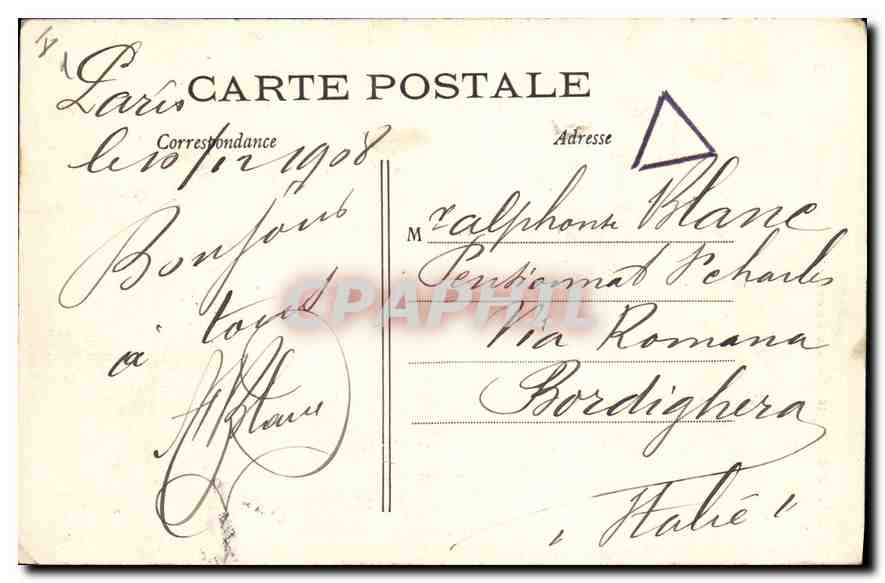 CARTE POSTALE
Correspondance
Adresse
Paris
le 10/12 1908
Bonjour
à tous
Blanc
Mr alphonse Blanc
Pensionnat St charles
Via Romana
Bordighera
"Italie"
CPAPHIL